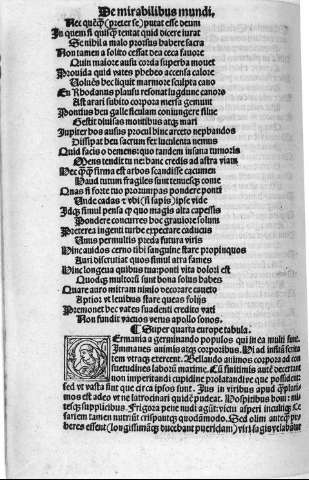 De mirabilibus mundi.
Nec quēq̄ (preter se) putat esse deum
In quem si quisq̄ tentat quid dicere iurat
Se nihil a malo prorsus habere sacra
Non tamen a solito cessat dea ceca fauore
Quin maiore ausu corda superba mouet
Prouida quid vates phebeo accensa calore
hec liquit marmore sculpta cano
En Rhodanus plausu resonat lugdune canoro
Ast arari subito corpora mersa gemunt
Pontius hen galle siculam coniungere filue
Gestit diuisas montibus atq̄ mari
Jupiter hos ausus procul hinc arceto nephandos
Dissipat hen sacrum fex luculenta nemus
Quid facis o demens: quo tandem insana tumoris
Mens tendit tu ne hanc credis ad astra viam
Nec q̄q̄ firma est arbos scandisse cacumen
Haud tutum fragiles sunt tenuesq̄ come
Quas si forte tuo prorumpas pondere ponti
Unde cadas et vbi (si sapis) ipse vide
Idq̄ simul pensa q̄ quo magis alta capessis
Pondere concurres hoc grauiore solum
Preterea ingenti turbe expectare caducus
Unus permultis preda futura viris
Hinc auidos cerno tibi sanguine stare propinquos
Auri discrutiat quos simul atra fames
Hinc longeua quibus tua: ponti vita dolori est
Quodq̄ multorū sunt bona solus habes
Quare auro mitram nimio decorare caueto
Aptior vt leuibus stare queas folijs
Premonet hec vates suadenti credito vati
Non fundit vacuos verus apollo sonos.
¶ Super quarta europe tabula.
Ermania a germinando populos qui in ea multi sunt.
Immanes animis atq̄ corporibus. Vi ad insitā
tem vtraq̄ exercent. Bellando animos corpora ad con
suetudines laborū maxime. Cū finitimis autē decertant
non imperitandi cupidine prolatandive que possident:
sed vt vasta sint que circa ipsos sunt. Jus in viribus apud
mos est adeo vt ne latrocinari quidē pudeat. Hospitibus boni: mi
tesq̄ supplicibus. Frigora pene nudi agūt: victu asperi incultiq̄.
sariem tamen nutriūt crispantq̄ quodāmodo. Sed olim
beres essent (longissimāq̄ ducebant puericiam)